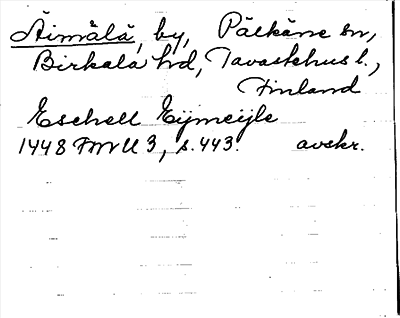 Äimälä, by, Pälkäne sn,
Birkala hd, Tavastehus l.,
Finland
Eschell Eijmeijle
1448 FMU 3, s. 443. avskr.